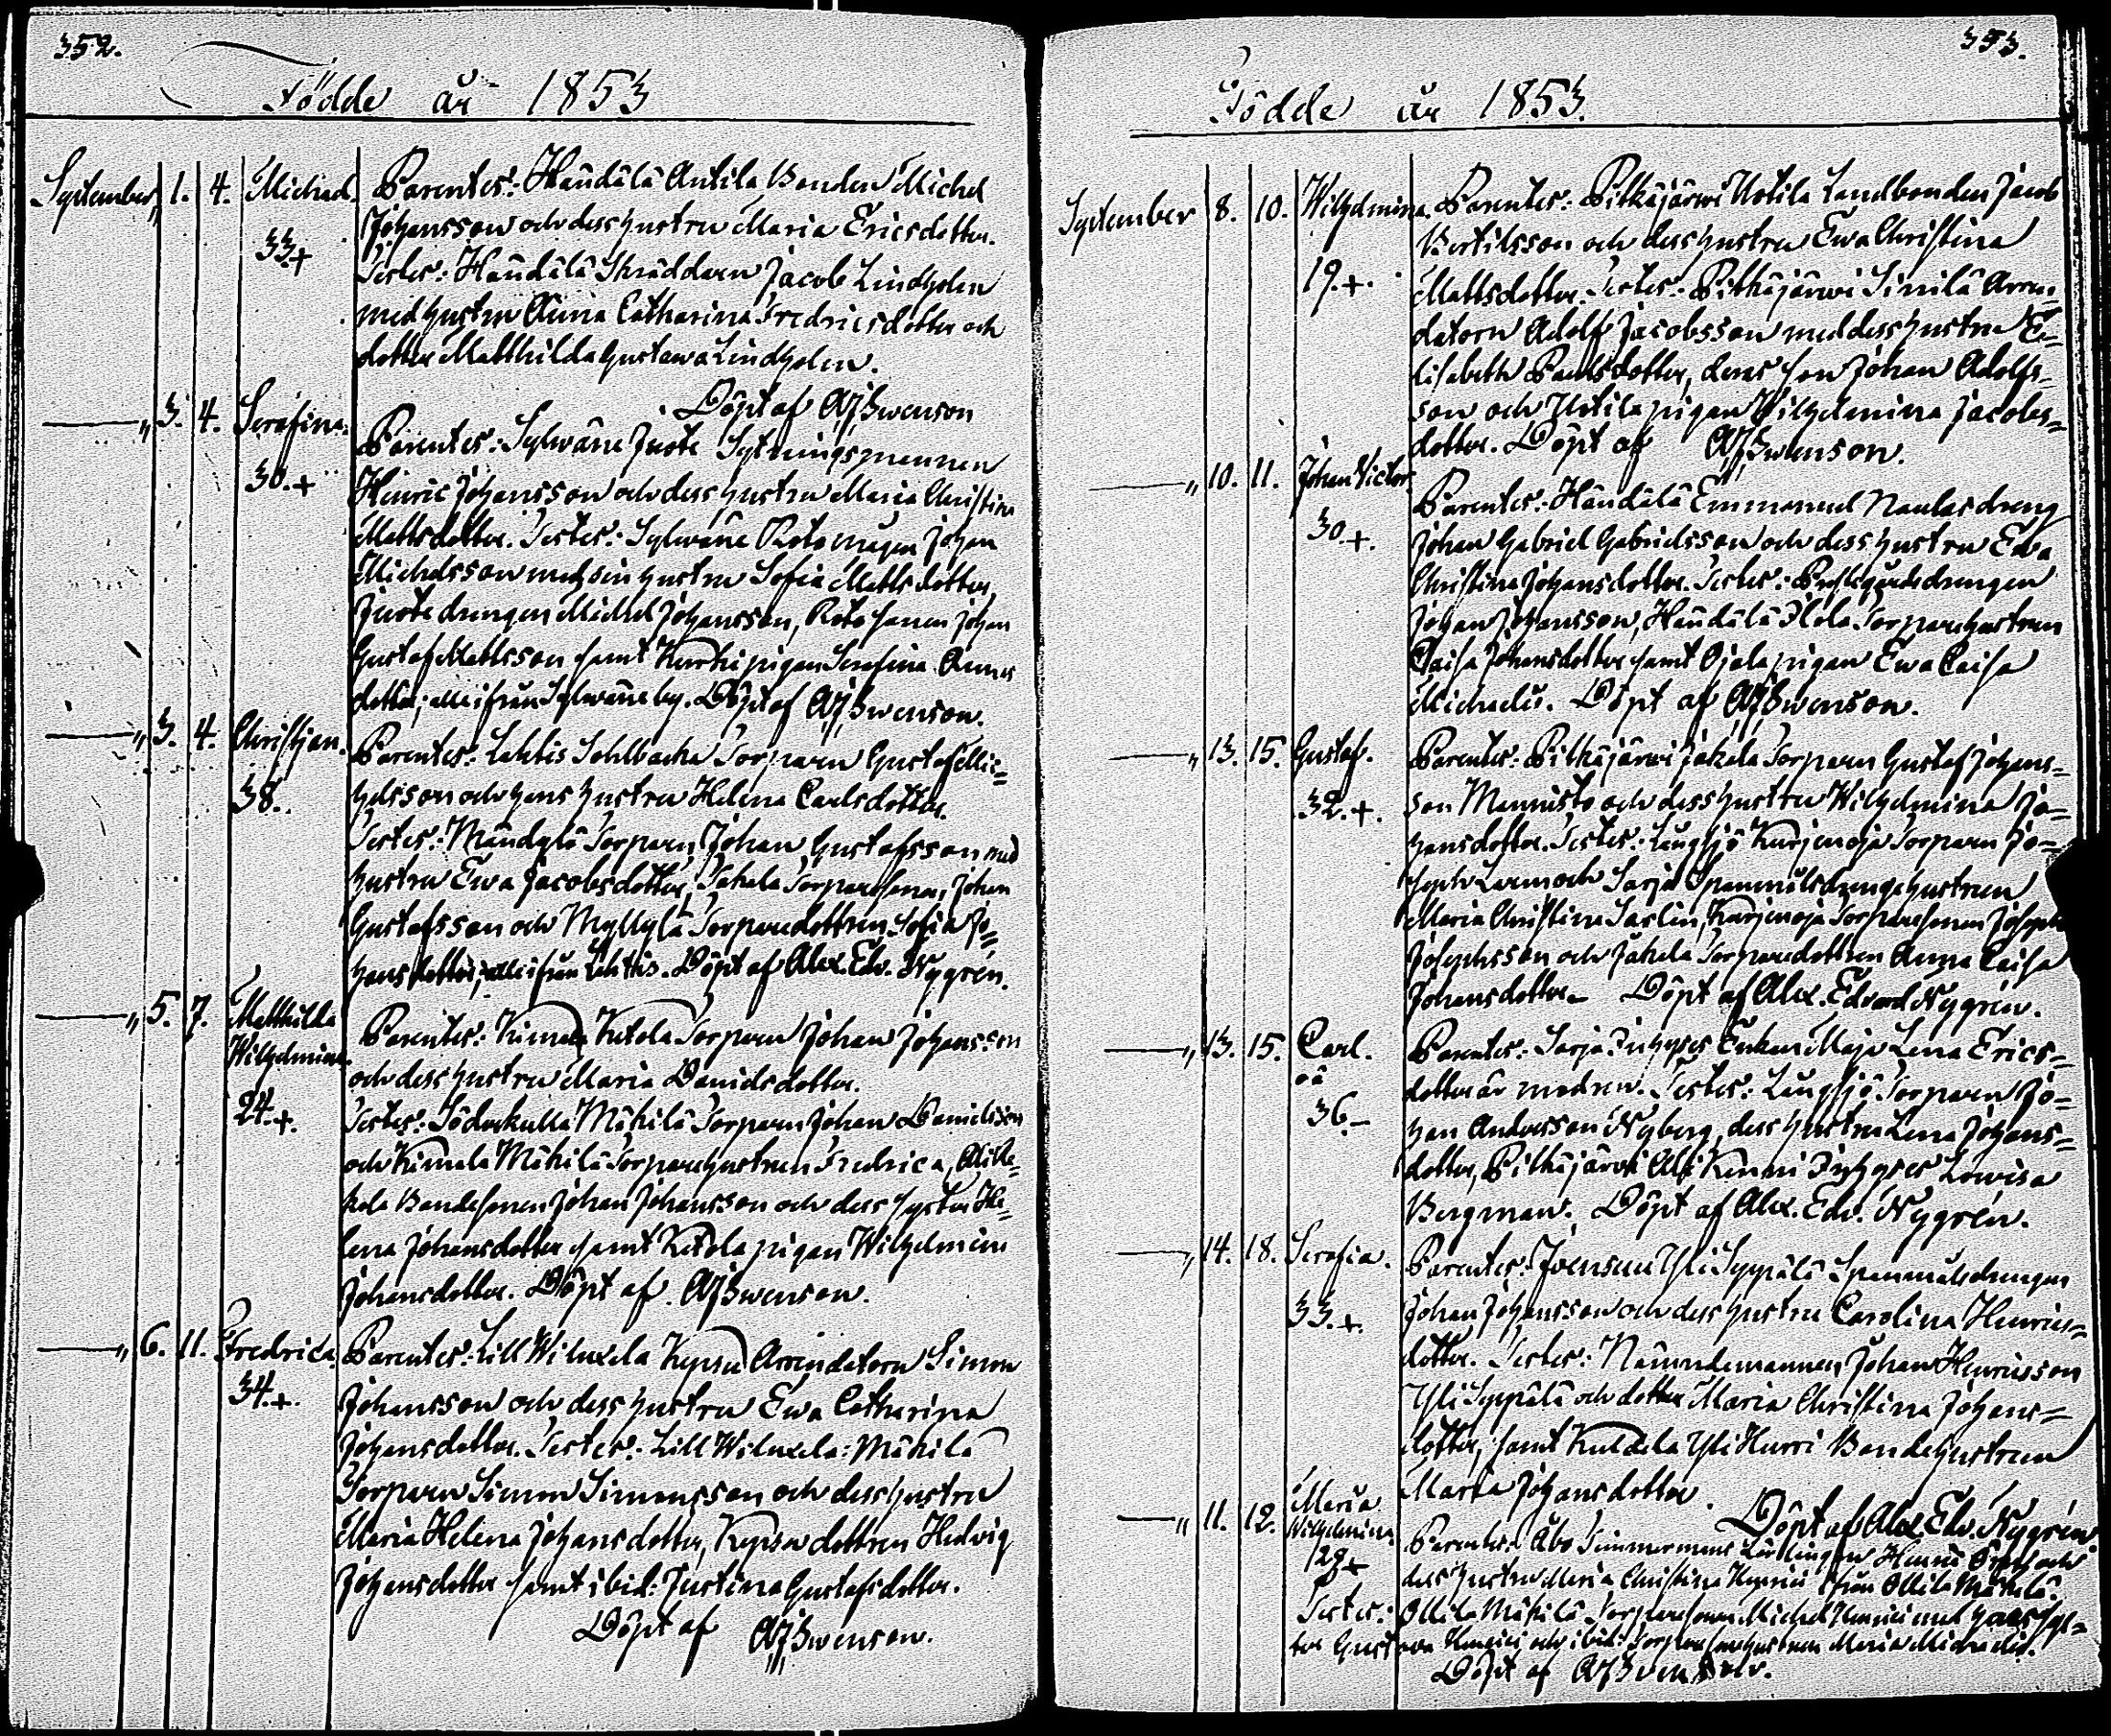 352.
Födde år 1853
September, 1. 4. Michael.
33.+
Parentes: Handälä Antila Bonden Michel
Johansson och dess hustru Maria Ericsdotter.
Testes: Handälä Skräddaren Jacob Lindholm
med hustru Anna Catharina Fredricsdotter och
dotter Matthilda Gustava Lindholm.
Döpt af AJSwenson
—„ 3. 4. Serafina.
30.+
Parentes: Sylwäne Juote Sytningsmannen
Henric Johansson och dess hustru Maria Christina
Mattsdotter. Testes: Sylwäne Roto mågen Johan
Michelsson med sin hustru Sofia Mattsdotter,
Juote drengen Michel Johansson, Roto sonen Johan
Gustaf Mattsson samt Kurki pigan Serafina Anners
dotter; alle ifrån Sylwäne by. Döpt af AJSwenson.
—„ 3. 4. Christian.
38.
Parentes: Lahtis Sohlbacka Torparen Gustaf Mic=
helsson och hans hustru Helena Carlsdotter.
Testes: Torparen Johan Gustafsson med
hustru Ewa Jacobsdotter, Torparesonen, Johan
Gustafsson och Myllylä Torparedottren Sofia Jo=
hansdotter; alle ifrån Lahtis. Döpt af Alex. Edv. Nygrén.
—„ 5. 7. Matthilda
Wilhelmina.
24.+.
Parentes: Kimala Ketola Torparen Johan Johansson
och dess hustru Maria Danielsdotter.
Testes: Söderkulla Mäkilä Torparen Johan Danielsson
och Kimala Mäkilä Torparehustrun Fredrica,
Bondesonen Johan Johansson och dess syster He=
lena Johansdotter samt Ketola pigan Wilhelmina
Johansdotter. Döpt af AJSwenson.
—„ 6. 11. Fredrica.
34.+.
Parentes: Lill Wiluxela Kepsu Arrendatorn Simon
Johansson och dess hustru Ewa Catharina
Johansdotter. Testes: Lill Wiluxela: Mäkilä
Torparen Simon Simonsson och dess hustru
Maria Helena Johansdotter, Kepsu dottren Hedvig
Johansdotter samt ibid: Justina Gustafsdotter.
Döpt af AJSwenson.
353.
Födde år 1853.
September 8. 10. Wilhelmina.
19.+.
Parentes: Pitkäjärwi Uotila Landbonden Jacob
Bertilsson och dess hustru Ewa Christina
Mattsdotter. Testes: Pitkäjärwi Simila Arren=
datorn Adolf Jacobsson med dess hustru E=
lisabeth Paulsdotter, deras son Johan Adolfs=
son och Uotila pigan Wilhelmina Jacobs=
dotter. Döpt af AJSwenson.
—„ 10. 11. Johan Victor.
30.+.
Parentes: Handälä Emmanuel Naulas dreng
Johan Gabriel Gabrielsson och dess hustru Ewa
Christina Johansdotter. Testes: Prestegårdsdrengen
Johan Johansson, Handälä Ilola Torparehustrun
Caisa Johansdotter samt Ojala pigan Ewa Caisa
Michaelis. Döpt af AJSwenson.
—„ 13. 15. Gustaf.
32.+.
Parentes: Pitkäjärwi Jakela Torparen Gustaf Johans=
son Mannisto och dess hustru Wilhelmina Jo=
hansdotter. Testes: Långsjö Karjenoja Torparen Jo=
seph och Sarja Spanmålsdrengehustrun
Maria Christina Saslin, Karjenoja Torparesonen Joseph
Josephsson och Jakela Torparedottren Anna Caisa
Johansdotter. Döpt af Alex. Edvard Nygrén.
—„ 13. 15. Carl.
oä
36.–
Parentes: Sarja Inhyses Enkan Maja Lena Erics=
dotter är modren. Testes: Långsjö Torparen Jo=
han Andersson Nyberg, dess hustru Lena Johans=
dotter, Pitkäjärwi Inhyses Lowisa
Bergman. Döpt af Alex. Edv. Nygrén.
—„ 14. 18. Serafia.
33.+.
Parentes: Joensuu Yli Seppälä Spanmålsdrengen
Johan Johansson och dess hustru Carolina Henrics=
dotter. Testes: Nämndemannen Johan Henricsson
Yli Seppälä och dotter Maria Christina Johans=
dotter, samt Kuldela Yli Hurri Bondehustrun
Maria Johansdotter.
Döpt af Alex. Edv. Nygrén.
—„ 11. 12. Maria
Wilhelmina.
28+
Parentes: Åbo Timmermans Lärlingen Henric och
dess hustru Maria Christina Henrici från Ollila Mäkilä.
Testes: Ollila Mäkilä Torparesonen Michel Henrici med hans sys=
ter Gustava Henrici och ibid: Torparesonhustrun Maria Michaelis.
Döpt af AJSwenson.